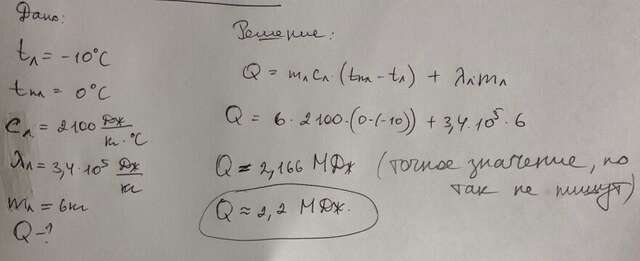 Дано:
tл = -10°C
tпл = 0°C
Cл = 2100 Дж/кг·°C
λл = 3,4·10⁵ Дж/кг
mл = 6кг
Q-?
Решение:
Q = mлcл·(tпл - tл) + λлmл
Q = 6·2100·(0-(-10)) + 3,4·10⁵·6
Q = 2,166 МДж (точное значение, но
так не пишут)
Q ≈ 2,2 МДж.